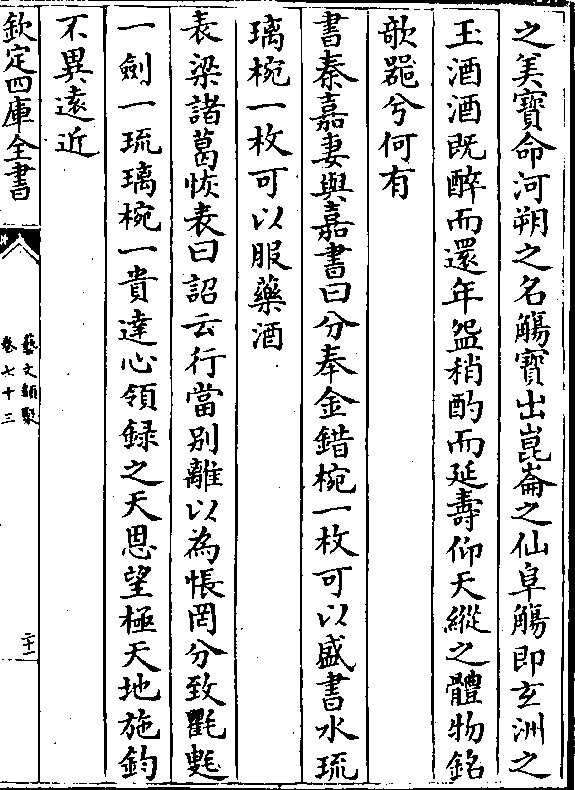 之美寶命河朔之名觴寶出崑崙之仙阜觴即玄洲之
玉酒酒既醉而還年盌稍酌而延壽仰天縱之體物銘
欹噐兮何有
書秦嘉妻與嘉書曰分奉金錯椀一枚可以盛書水琉
璃椀一枚可以服藥酒
表梁諸葛恢表曰詔云行當别離以為悵罔分致氍㲣
一劍一琉璃椀一貴達心領録之天恩望極天地施鈞
不異遠近
欽定四庫全書
藝文類聚
卷七十三
二十一